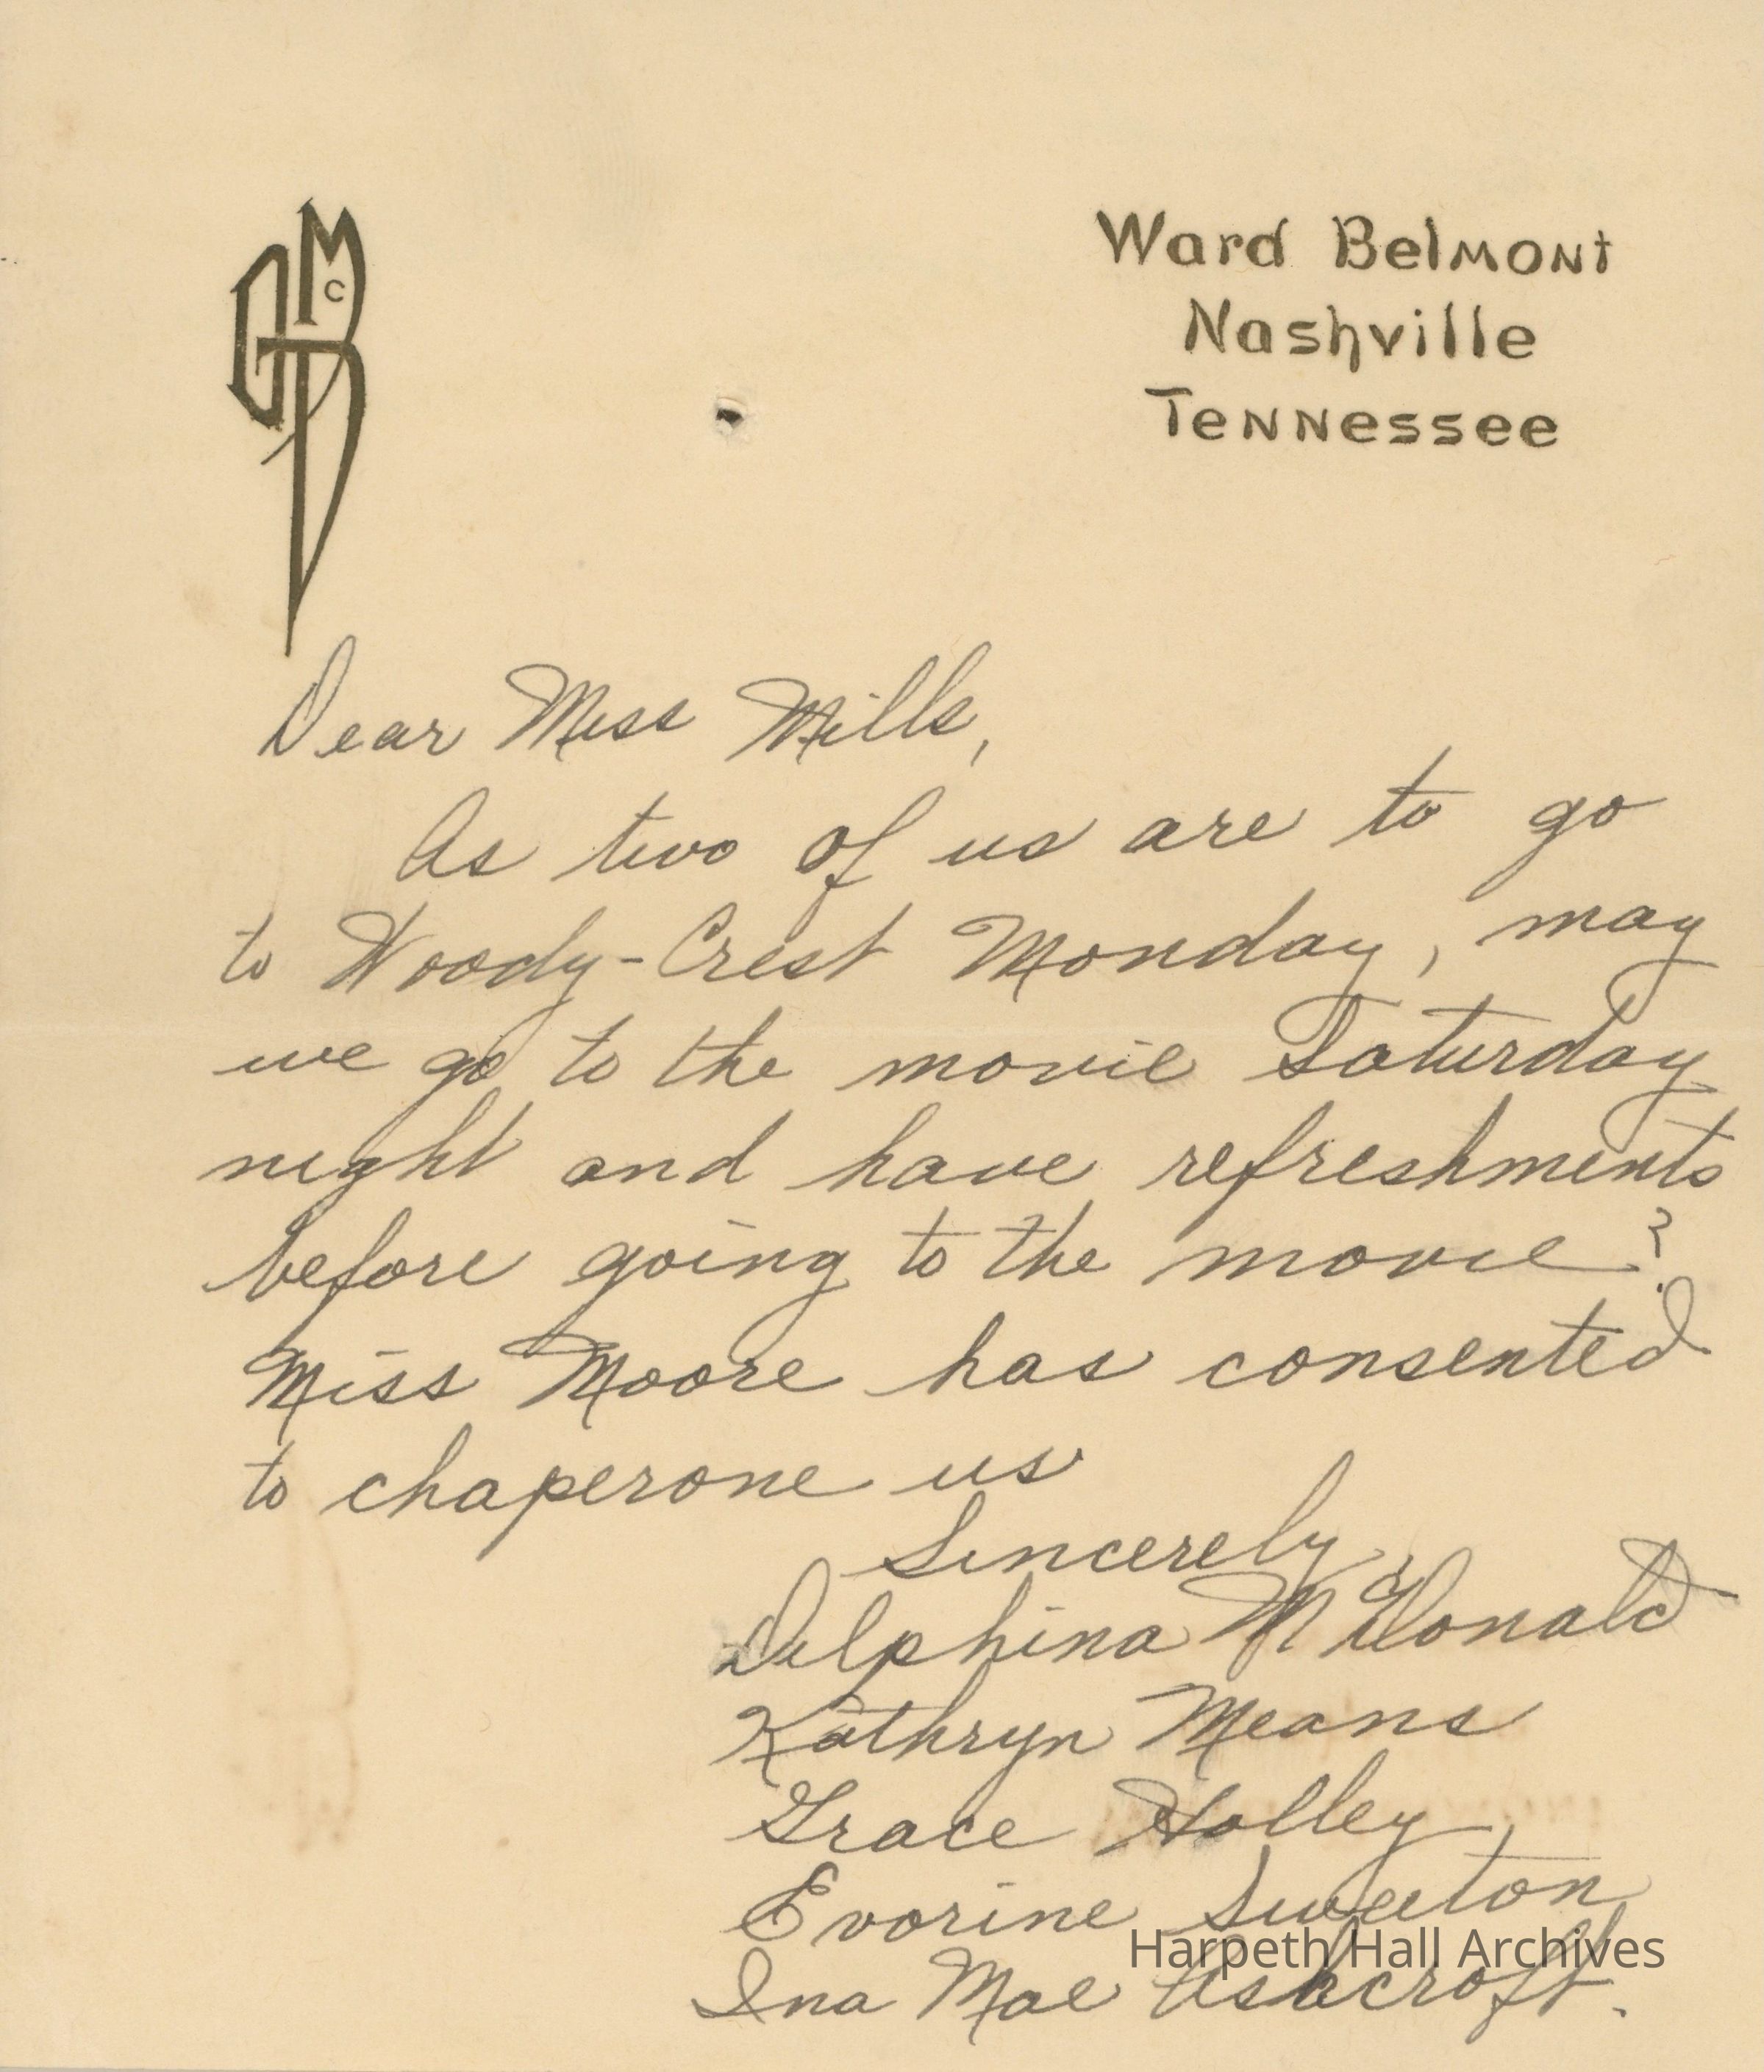 GMcD
Ward Belmont
Nashville
Tennessee
Dear Miss Mills,
As two of us are to go
to Woody-Crest Monday, may
we go to the movie Saturday
night and have refreshments
before going to the movie?
Miss Moore has consented
to chaperone us
Sincerely,
Delphina McDonald
Kathryn Means
Grace Holley
Evorine Sweeton
Harpeth Hall Archives
Ina Mae Ashcroft.